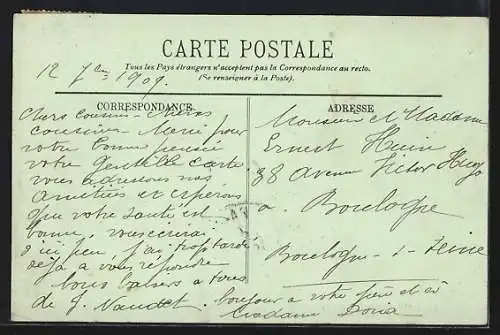 CARTE POSTALE
Tous les Pays étrangers n'acceptent pas la Correspondance au recto.
(Se renseigner à la Poste).
12 7bre 1909.
CORRESPONDANCE
Chers cousins - Chères
cousines - Merci pour
votre bonne pensée
votre Gentille carte
vous adressons nos
amitiés et espérons
que votre santé est
bonne, vous écrirai
d'ici peu j'ai trop tardé
déjà à vous répondre
bons baisers à tous
de J. Naudot. bonjour à votre père et à
Madame
ADRESSE
Monsieur et Madame
Ernest
38 avenue Victor Hugo
à Boulogne
Boulogne - s - Seine